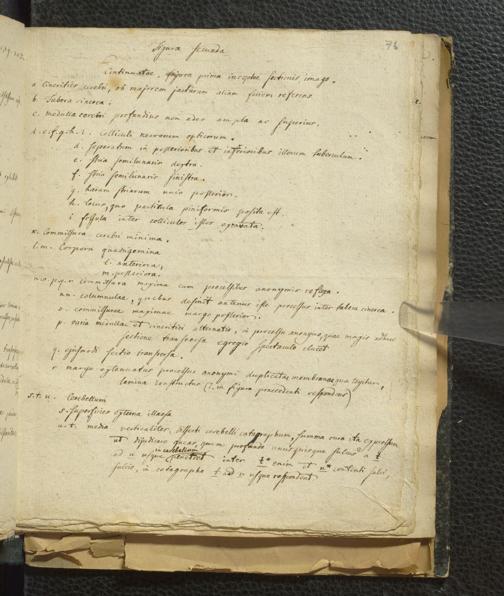 76
Figura secunda
Continuatae, figura prima inceptae sectionis imago.
a Cineritiae cerebri, ob majorem jacturam aliam faciem referens
b. Tubera cinerea.
c. medulla cerebri profundius non adeo ampla ac superius.
d.e.f.g.h.i. Colliculi nervorum opticorum.
d. separatum in posterioribus et inferioribus illorum tuberculum.
e. stria semilunaris dextra.
f. stria semilunaris sinistra.
g. harum striarum unio posterior.
h. locus, quo particula piniformis posita est.
i fossula inter colliculos istos
k. Commissura cerebri minima.
l.m. Corpora quadrigemina
l. anteriora,
m. posteriora.
n.o.p.q.r. commissura maxima cum processibus anonymis resecta.
nn. columnulae, quibus desinit antenus iste processus inter tubera cinerea.
o. commissurae maximae margo posterior.
p. varia medullae et cineritii alternatio, in processu anonymo, quae magis adhuc
sectione transversa egregio spectaculo elucet
q. ejusdem sectio transversa.
r margo eglannatus processus anonymi duplicatae membranae, qua tegitur,
lamina constructus (r. in figura praecedenti respondens)
s.t.u. Cerebellum
s. superficies externa illaesa
u.t. media verticaliter, dissecti cerebelli catographum, summa cura ita expressum
ut dijudicare queas, quam profunde unusquisque sulcus a t
ad u usque in cerebellum penetret inter t enim et u contenti sulci,
sulcis, in catographo t ad x usque respondent